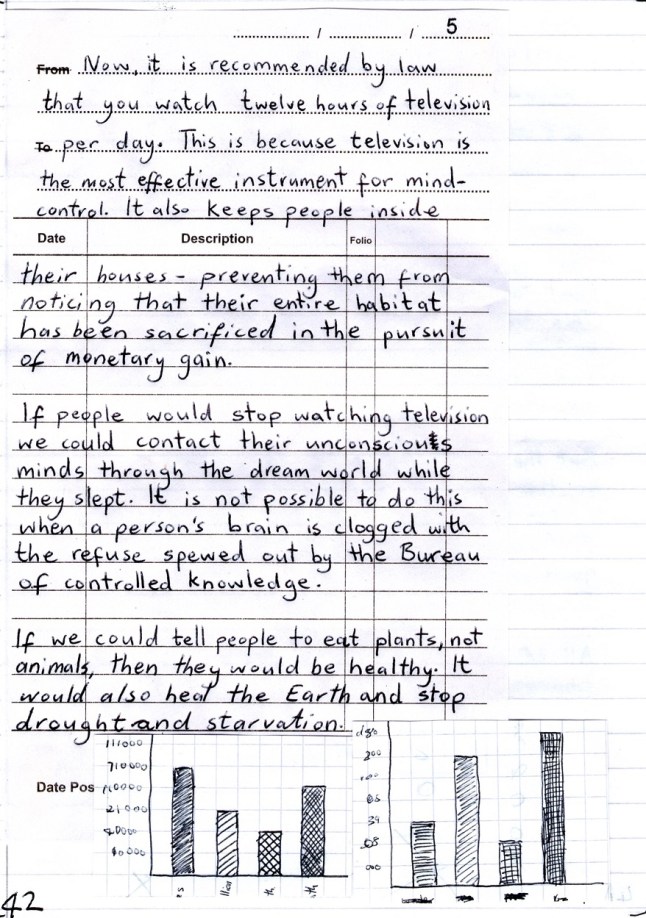 / / 5
From Now, it is recommended by law
that you watch twelve hours of television
To per day. This is because television is
the most effective instrument for mind-
control. It also keeps people inside
Date Description Folio
their houses - preventing them from
noticing that their entire habitat
has been sacrificed in the pursuit
of monetary gain.
If people would stop watching television
we could contact their unconscious
minds through the dream world while
they slept. It is not possible to do this
when a person's brain is clogged with
the refuse spewed out by the Bureau
of controlled knowledge.
If we could tell people to eat plants, not
animals, then they would be healthy. It
would also heal the Earth and stop
drought and starvation.
111000
710000
Date Pos
21000
200
34
000
42